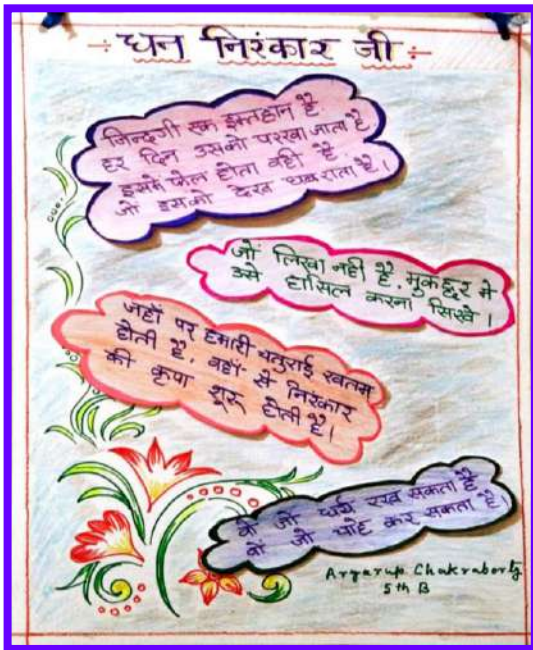 ÷ धन निरंकार जी ÷
जिन्दगी एक इम्तहान है
हर दिन उसको परखा जाता है
इसमें फेल होता वही है
जो इसको देख घबराता है।
जो लिखा नही है, मुकद्दर मे
उसे हासिल करना सिखे।
जहाँ पर हमारी चतुराई खतम
होती है, वहाँ से निरंकार
की कृपा शुरू होती है।
वो जो धर्य रख सकता है
वो जो चाहे कर सकता है
Aryarup Chakraborty
5th B